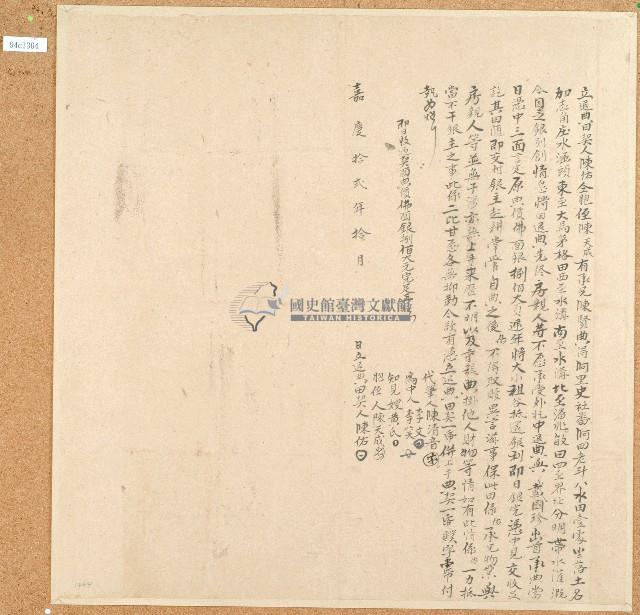 立退典田契人陳佑仝胞侄陳天成有承父陳賢典過阿里史社番阿四老斗八水田壹處坐落土名
加志閣庄水滙頭東至大馬茅格田西至水溝南至水溝北至潘兆敏田四至界址分明帶水灌溉
今因乏銀別創情愿將田退典先儘房親人等不愿承受外托中退典與戴國珍出首承典當
日憑中三面言定原典價佛面銀捌佰大員逐年將大小租谷抵還銀利即日銀完憑中見交收足
訖其田隨即交付銀主起耕掌管自典之後佑不得取贖異言滋事保此田係佑承兄物業與
房親人等並無干涉亦無上手來歷不明以及重張典掛他人財物等情如有此情係佑一力抵
當不干銀主之事此係二比甘愿各無抑勒今欲有憑立退典田契一帋併上手典契一帋賧字壹帋付
執為炤
即日收過契內典價佛面銀捌佰大元完足再炤
代筆人陳清音
為中人李文
李笑
知見嫂黃氏
胞侄人陳天成
嘉慶拾貳年拾月 日立退典田契人陳佑
國史館臺灣文獻館
TAIWAN HISTORICA